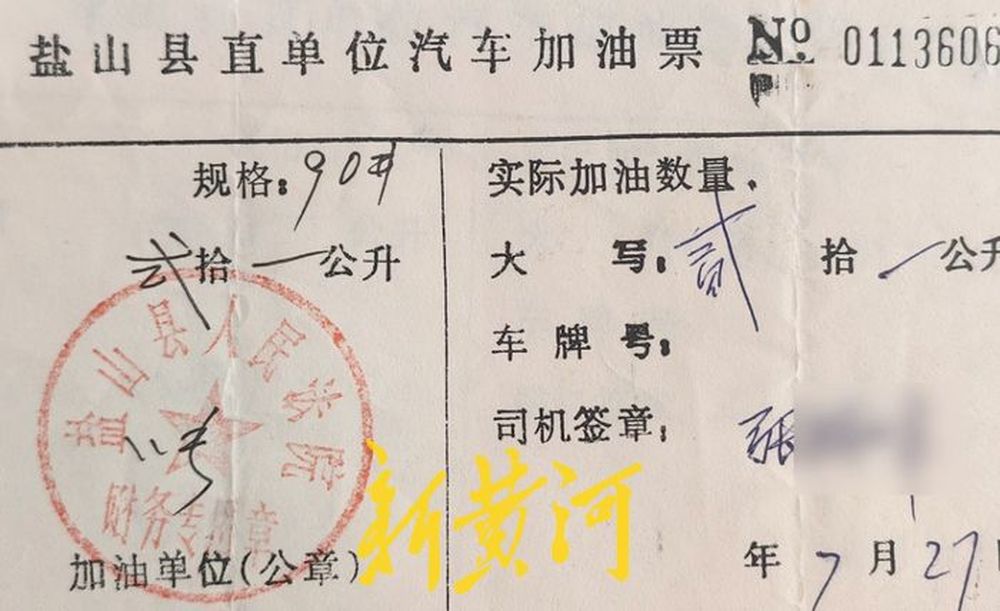 盐山县直单位汽车加油票 № 0113606
规格:90#
贰拾一公升
盐山县人民法院
财务专用章
加油单位(公章)
实际加油数量.
大写:贰拾一公升
车牌号:
司机签章:张
年7月27日
新黄河